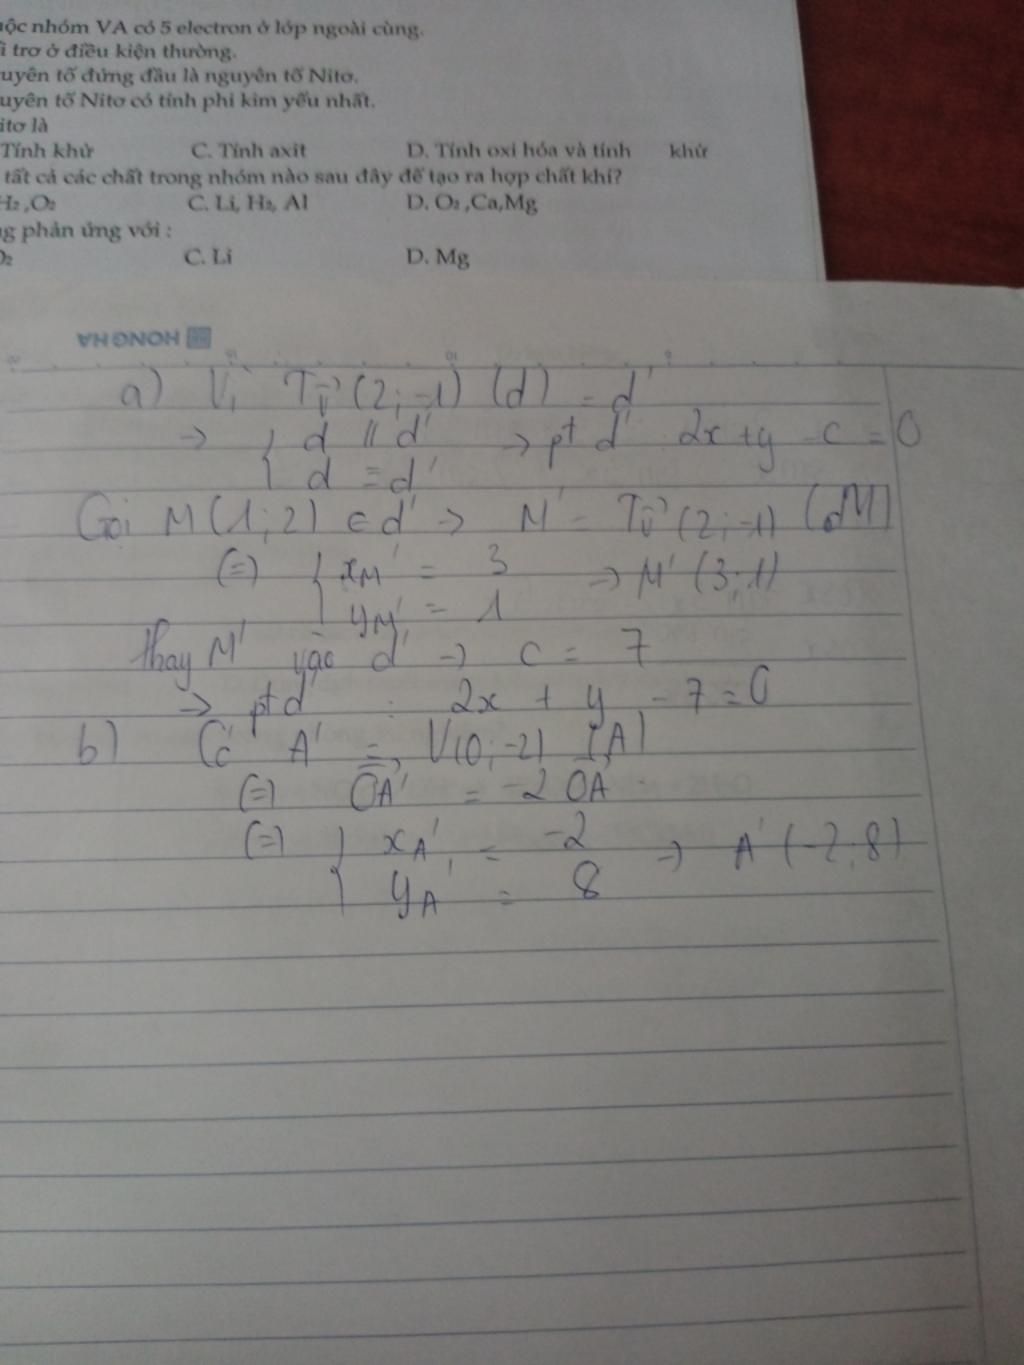 uộc nhóm VA có 5 electron ở lớp ngoài cùng.
í trơ ở điều kiện thường.
uyên tố đứng đầu là nguyên tố Nitơ.
uyên tố Nitơ có tính phi kim yếu nhất.
itơ là
Tính khử C. Tính axit D. Tính oxi hóa và tính khử
tất cả các chất trong nhóm nào sau đây để tạo ra hợp chất khí?
H₂ ,O₂ C. Li, H₂, Al D. O₂ ,Ca,Mg
ng phản ứng với :
O₂ C. Li D. Mg
HONG HA
a) Vì Tv⃗ (2;-1) (d) = d'
→ { d // d' → pt d' 2x + y - c = 0
d ≡ d'
Gọi M(1;2) ∈ d' → M' = Tv⃗ (2;-1) (dM)
(=) { xM' = 3 → M' (3;1)
yM' = 1
thay M' vào d' → c = 7
→ pt d' : 2x + y - 7 = 0
b) Có A' = V(0;-2) (A)
(=) OA' = -2 OA
(=) { xA' = -2 → A' (-2;8)
yA' = 8